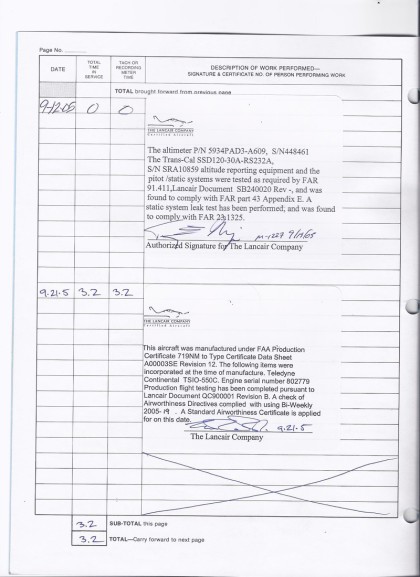 Page No. ..........
DATE
TOTAL TIME IN SERVICE
TACH OR RECORDING METER TIME
DESCRIPTION OF WORK PERFORMED—
SIGNATURE & CERTIFICATE NO. OF PERSON PERFORMING WORK
TOTAL brought forward from previous page
9-12-05 0 0
THE LANCAIR COMPANY
Certified Aircraft
The altimeter P/N 5934PAD3-A609, S/N448461
The Trans-Cal SSD120-30A-RS232A,
S/N SRA10859 altitude reporting equipment and the
pitot /static systems were tested as required by FAR
91.411,Lancair Document SB240020 Rev -, and was
found to comply with FAR part 43 Appendix E. A
static system leak test has been performed; and was found
to comply with FAR 23.1325.
Authorized Signature for The Lancair Company
9.21.5 3.2 3.2
THE LANCAIR COMPANY
Certified Aircraft
This aircraft was manufactured under FAA Production
Certificate 719NM to Type Certificate Data Sheet
A00003SE Revision 12. The following items were
incorporated at the time of manufacture. Teledyne
Continental TSIO-550C. Engine serial number 802779
Production flight testing has been completed pursuant to
Lancair Document QC900001 Revision B. A check of
Airworthiness Directives complied with using Bi-Weekly
2005-19 . A Standard Airworthiness Certificate is applied
for on this date.
9.21.5
The Lancair Company
3.2 SUB-TOTAL this page
3.2 TOTAL—Carry forward to next page